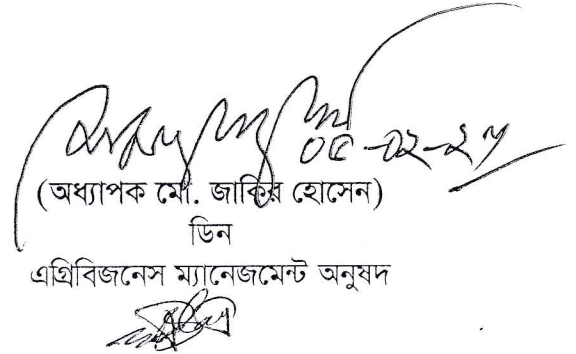 ০৫-০২-২৬
(অধ্যাপক মো. জাকির হোসেন)
ডিন
এগ্রিবিজনেস ম্যানেজমেন্ট অনুষদ